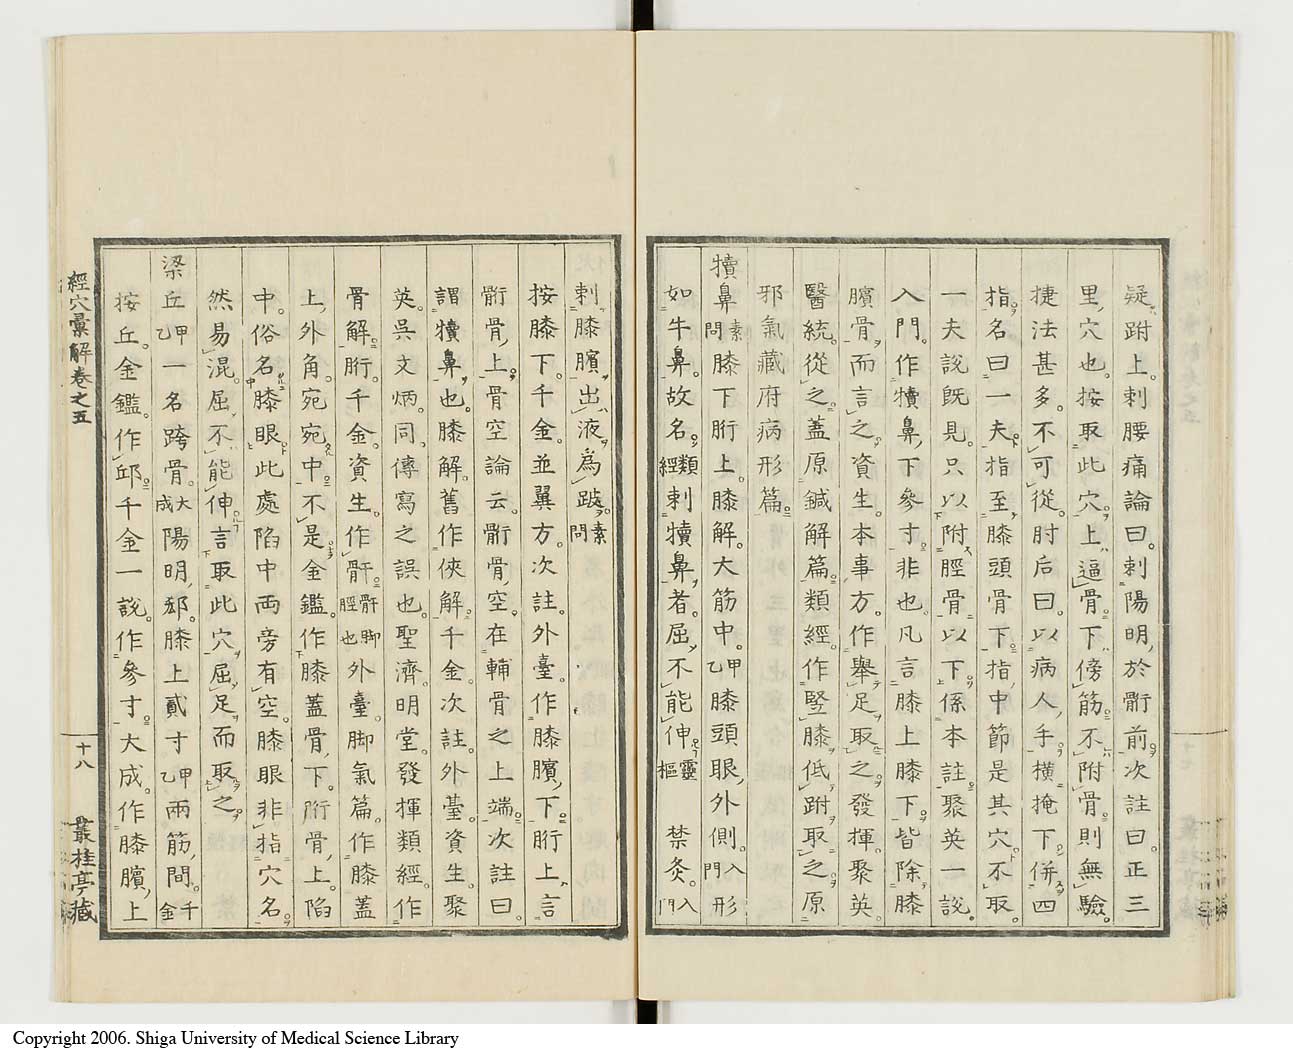 疑跗上。刺腰痛論曰。刺陽明於骭前。次註曰。正三
里穴也。按取此穴。上逼骨。下傍筋。不附骨。則無驗。
捷法甚多。不可從。肘后曰。以病人手。橫掩下併四
指。名曰一夫。指至膝頭骨下。指中節是其穴。不取
一夫說既見。只以附脛骨以下。係本註。聚英一說。
入門。作犢鼻下參寸。非也。凡言膝上膝下。皆除膝
臏骨而言之。資生。本事方。作舉足取之。發揮。聚英。
醫統。從之。蓋原鍼解篇。類經。作竪膝低跗取之。原
邪氣藏府病形篇。
犢鼻素問膝下胻上。膝解。大筋中。甲乙膝頭眼外側。入門形
如牛鼻。故名。類經刺犢鼻者。屈不能伸。靈樞 禁灸。入門
刺膝臏出液爲跛。素問
按膝下。千金並翼方。次註。外臺。作膝臏下胻上。言
骭骨上。骨空論云。骭骨空。在輔骨之上端。次註曰。
謂犢鼻也。膝解。舊作俠解。千金。次註。外臺。資生。聚
英。吳文炳。同。傳寫之誤也。聖濟。明堂。發揮。類經。作
骨解。胻。千金。資生。作骭。骭脚脛也外臺。脚氣篇。作膝蓋
上外角。宛宛中。不是。金鑑。作膝蓋骨下。胻骨上。陷
中。俗名膝眼。此處陷中兩旁有空。膝眼非指穴名。
然易混。屈不能伸。言取此穴屈足而取之。
梁丘甲乙一名跨骨。大成陽明郄。膝上貳寸甲乙兩筋間。千金
按丘。金鑑。作邱。千金一說。作參寸。大成。作膝臏上
經穴彙解卷之五
十八
叢桂亭藏
Copyright 2006. Shiga University of Medical Science Library